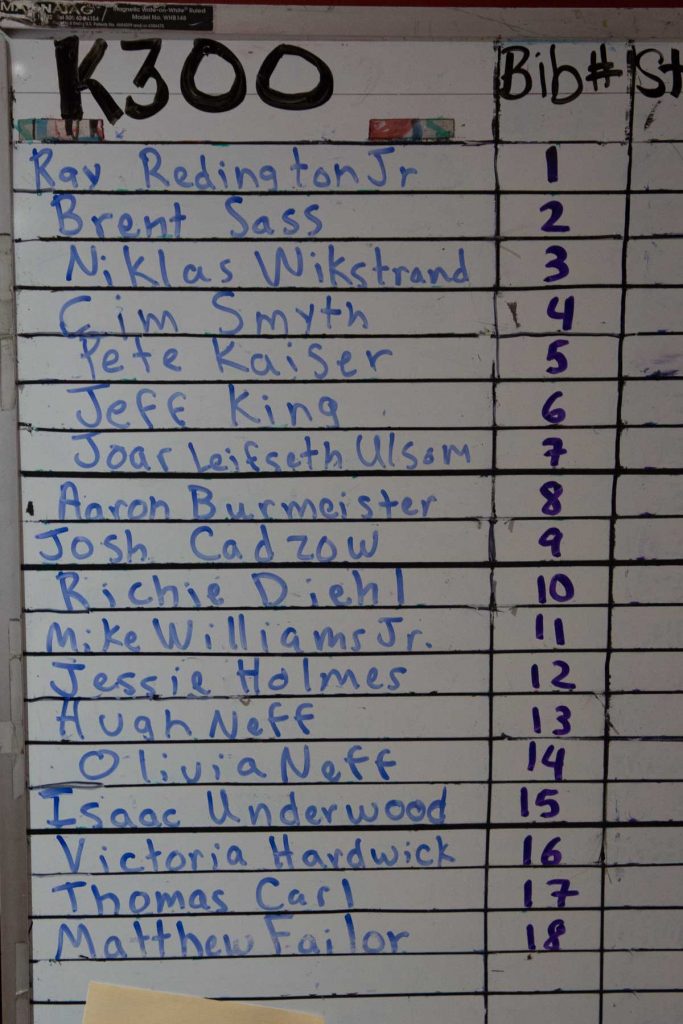 MAGNATAG® Magnetic Wide-on-White® Ruled
Model No. WHB148
K300 Bib# St
Ray Redington Jr 1
Brent Sass 2
Niklas Wikstrand 3
Cim Smyth 4
Pete Kaiser 5
Jeff King 6
Joar Leifseth Ulsom 7
Aaron Burmeister 8
Josh Cadzow 9
Richie Diehl 10
Mike Williams Jr. 11
Jessie Holmes 12
Hugh Neff 13
Olivia Neff 14
Isaac Underwood 15
Victoria Hardwick 16
Thomas Carl 17
Matthew Failor 18